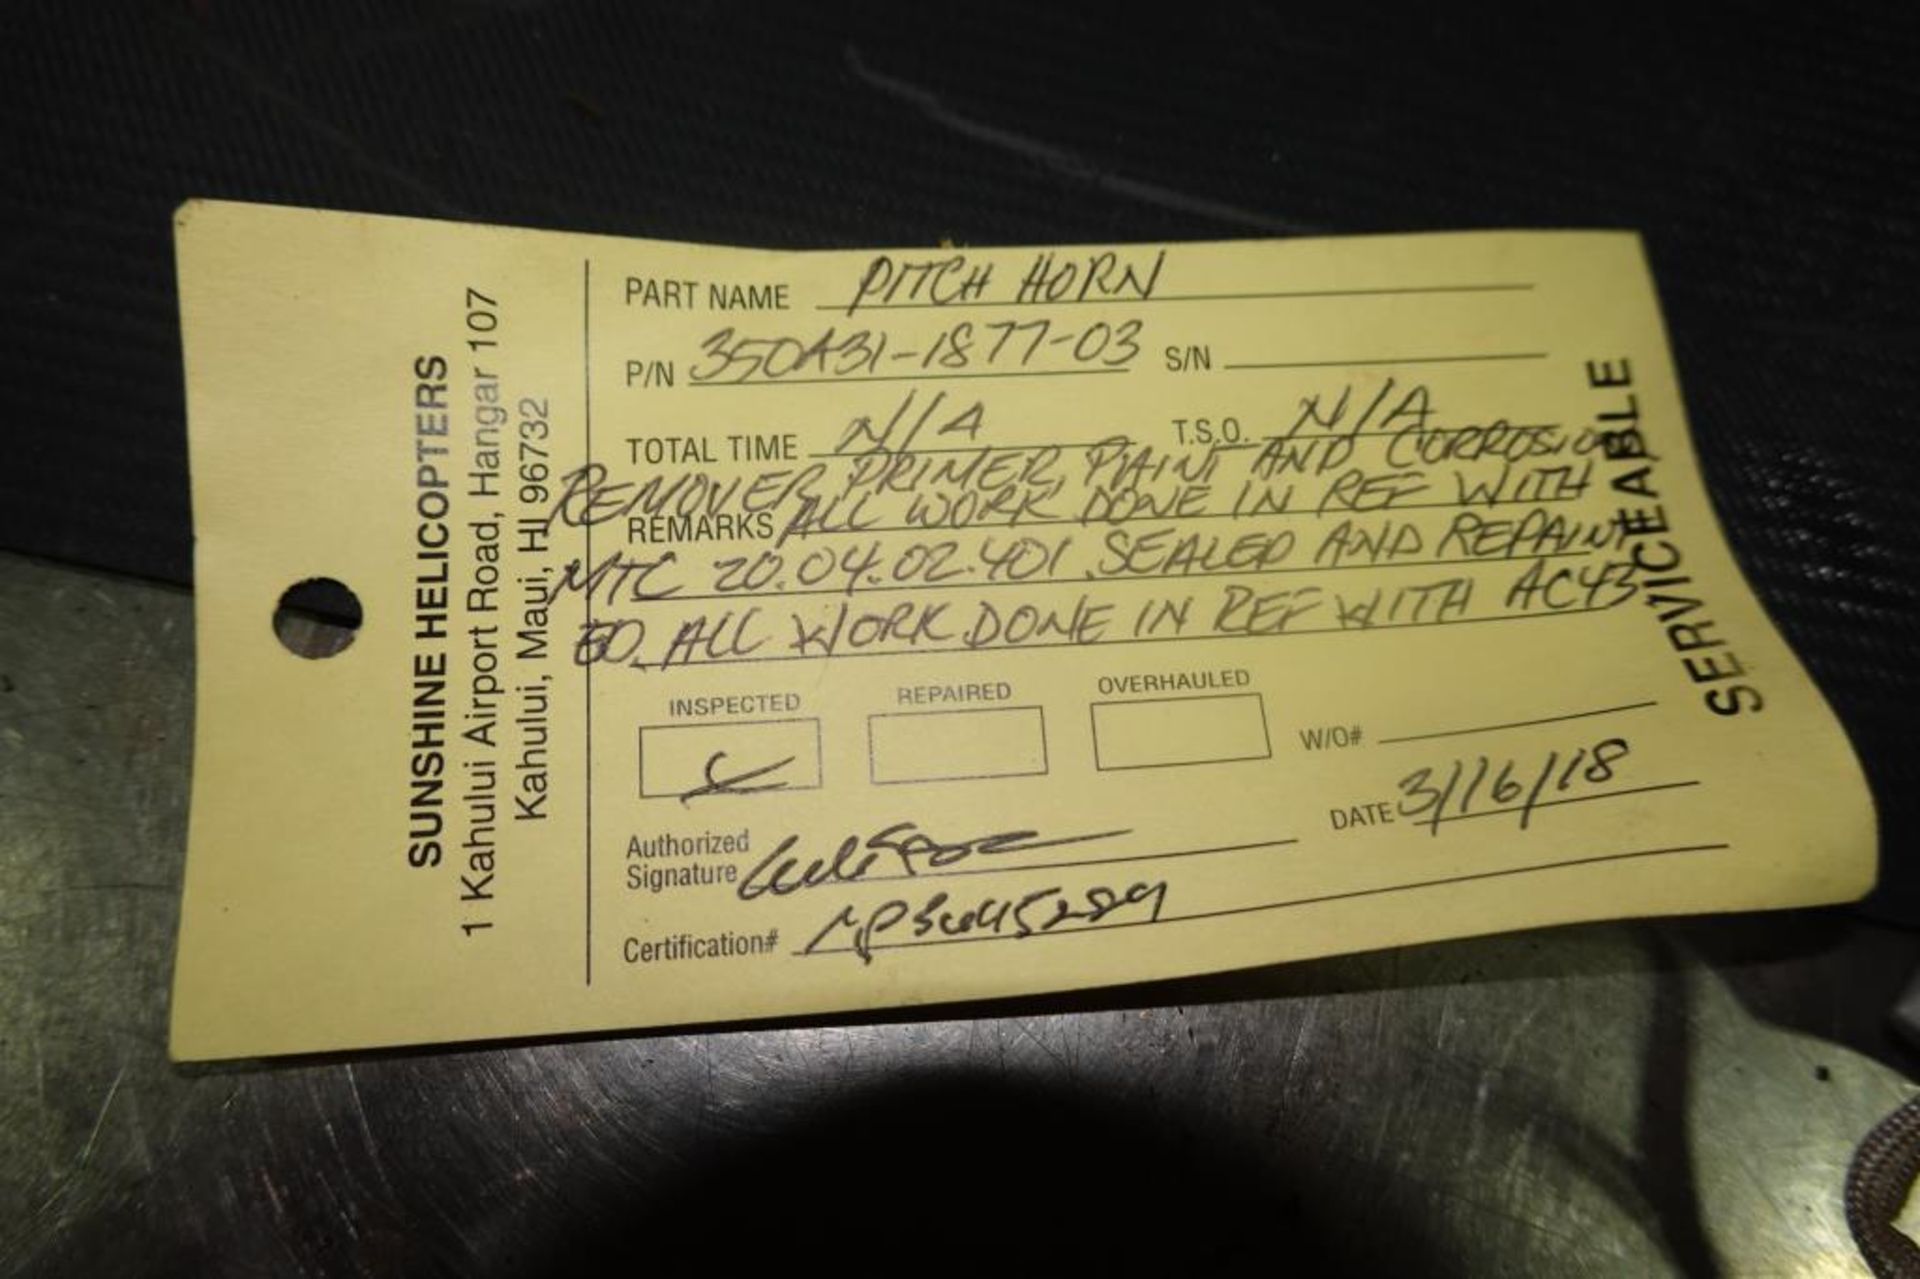 SUNSHINE HELICOPTERS
1 Kahului Airport Road, Hangar 107
Kahului, Maui, HI 96732
PART NAME PITCH HORN
P/N 350A31-1877-03 S/N
TOTAL TIME N/A T.S.O. N/A
REMOVER PRIMER, PIAINT AND CORROSION
REMARKS ALL WORK DONE IN REF WITH
MTC 20.04.02.401. SEALED AND REPAINT
ED. ALL WORK DONE IN REF WITH AC43
INSPECTED REPAIRED OVERHAULED
W/O#
DATE 3/16/18
Authorized
Signature
Certification#
SERVICEABLE